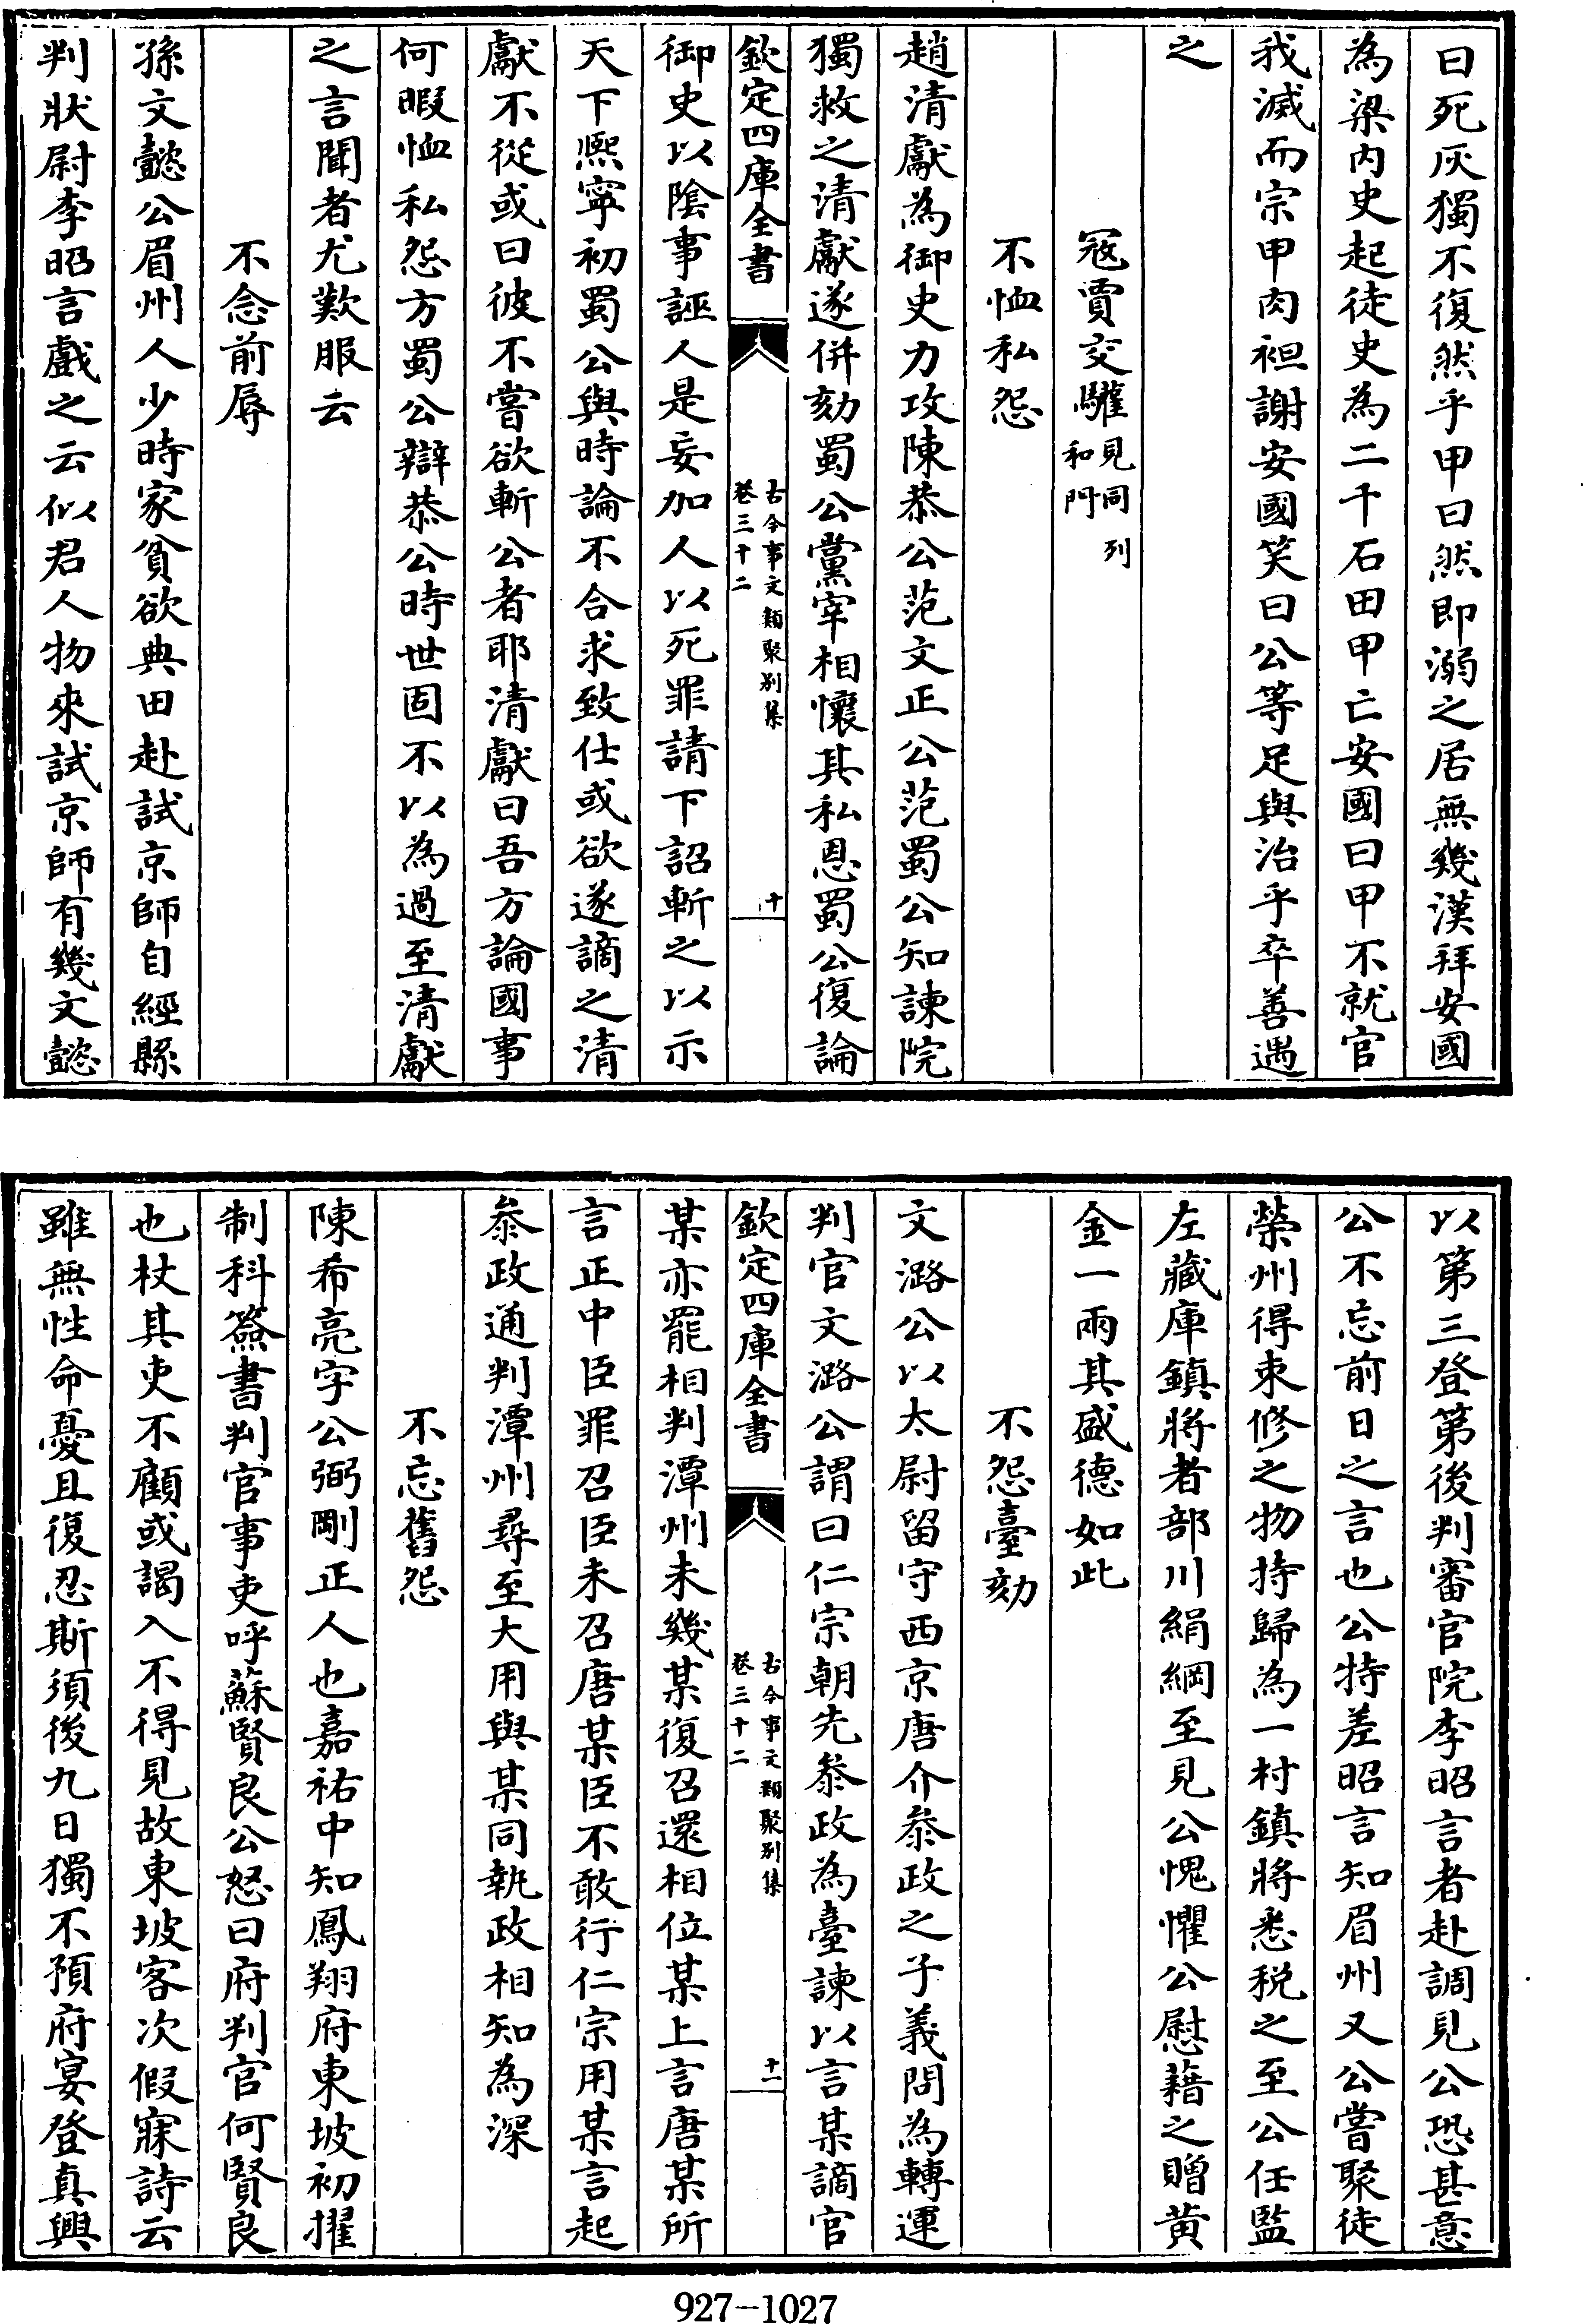 曰死灰獨不復然乎甲曰然即溺之居無幾漢拜安國
為梁內史起徒史為二千石田甲亡安國曰甲不就官
我滅而宗甲肉袒謝安國笑曰公等足與治乎卒善遇
之
寇賈交驩見同列和門
不恤私怨
趙清獻為御史力攻陳恭公范文正公范蜀公知諫院
獨救之清獻遂併劾蜀公黨宰相懷其私恩蜀公復論
欽定四庫全書
古今事文類聚別集
卷三十二
十
御史以陰事誣人是妄加人以死罪請下詔斬之以示
天下熙寧初蜀公與時論不合求致仕或欲遂謫之清
獻不從或曰彼不嘗欲斬公者耶清獻曰吾方論國事
何暇恤私怨方蜀公辯恭公時世固不以為過至清獻
之言聞者尤歎服云
不念前辱
孫文懿公眉州人少時家貧欲典田赴試京師自經縣
判狀尉李昭言戲之云似君人物來試京師有幾文懿
以第三登第後判審官院李昭言者赴調見公恐甚意
公不忘前日之言也公特差昭言知眉州又公嘗聚徒
榮州得束修之物持歸為一村鎮將悉税之至公任監
左藏庫鎮將者部川絹綱至見公愧懼公慰藉之贈黃
金一兩其盛德如此
不怨臺劾
文潞公以太尉留守西京唐介參政之子義問為轉運
判官文潞公謂曰仁宗朝先參政為臺諫以言某謫官
欽定四庫全書
古今事文類聚別集
卷三十二
十一
某亦罷相判潭州未幾某復召還相位某上言唐某所
言正中臣罪召臣未召唐某臣不敢行仁宗用某言起
參政通判潭州尋至大用與某同執政相知為深
不忘舊怨
陳希亮字公弼剛正人也嘉祐中知鳳翔府東坡初擢
制科簽書判官事吏呼蘇賢良公怒曰府判官何賢良
也杖其吏不顧或謁入不得見故東坡客次假寐詩云
雖無性命憂且復忍斯須後九日獨不預府宴登真興
927-1027